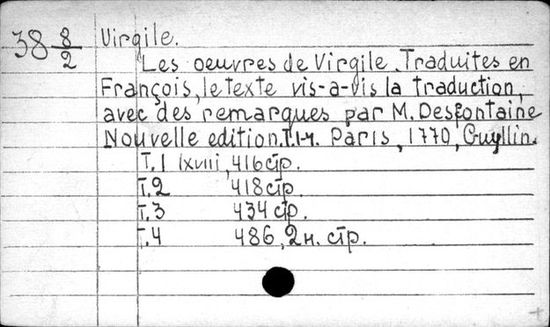 38 8/2 Virgile.
Les oeuvres de Virgile. Traduites en
François, le texte vis-a-vis la traduction,
avec des remarques par M. Desfontaine
Nouvelle edition. T.1-4. Paris, 1770, Quyllin.
T.1 lxviii, 416 стр.
T.2 418 стр.
T.3 434 стр.
T.4 486, 2 н. стр.